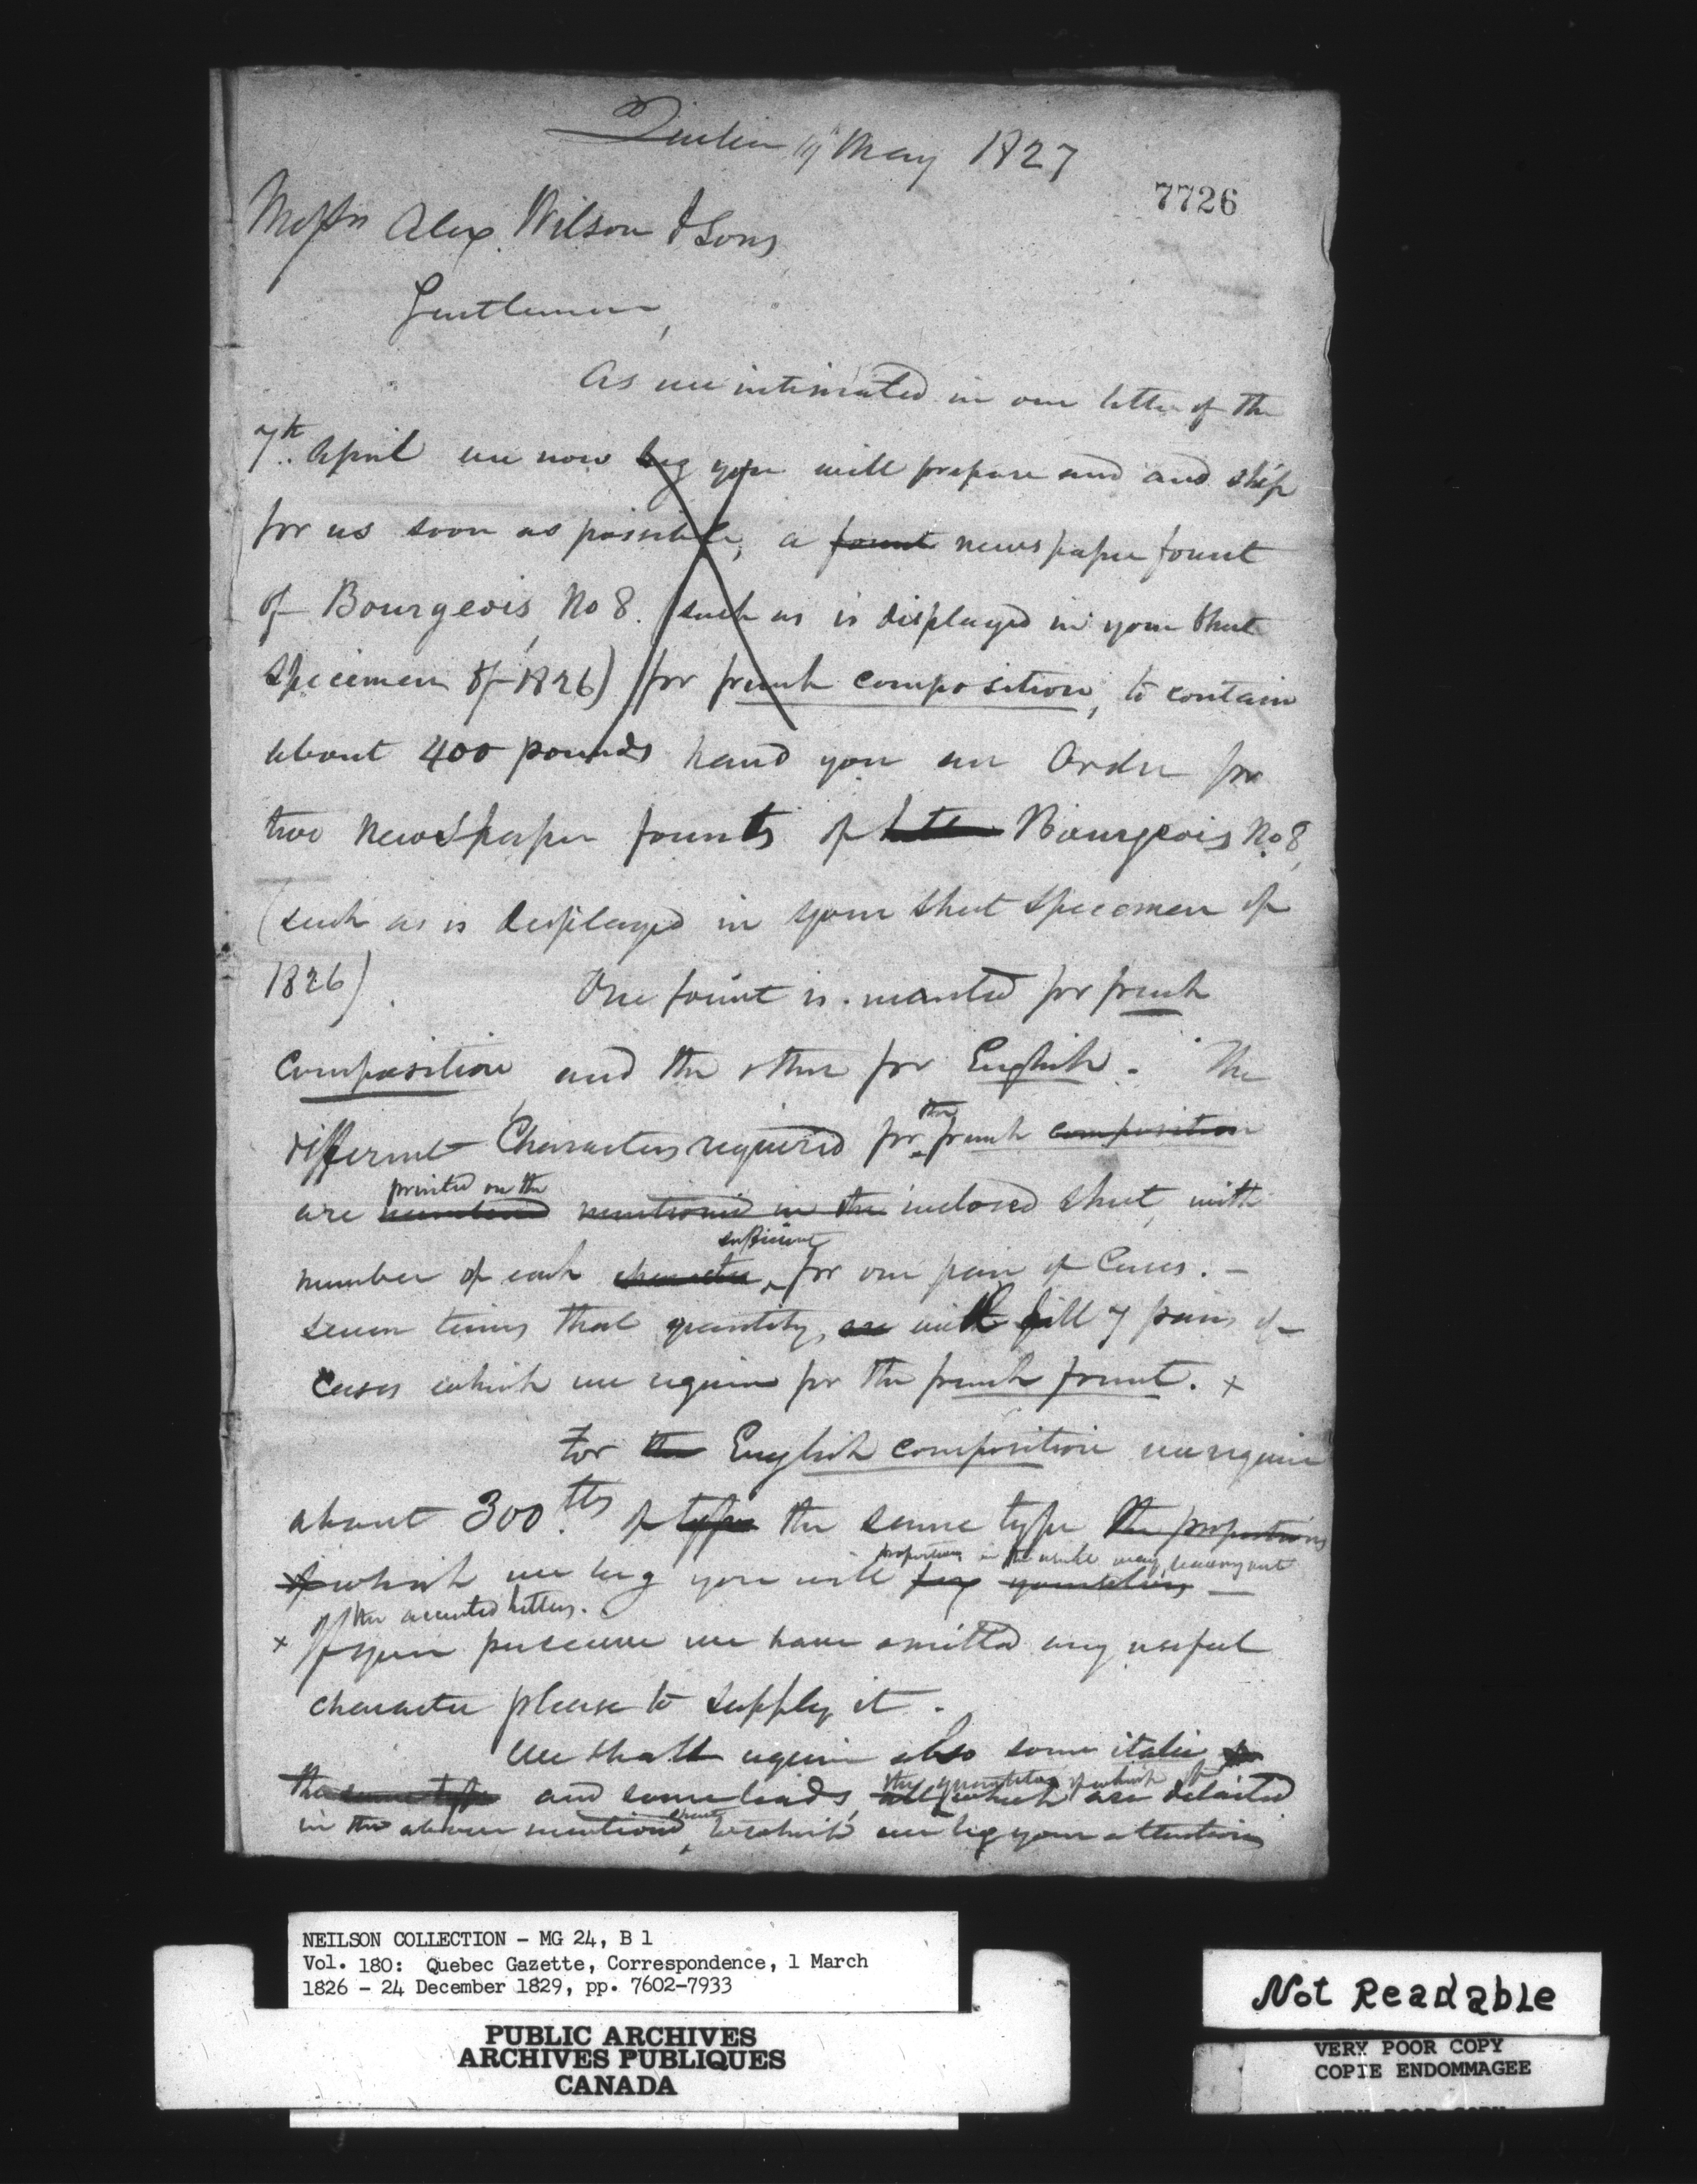 Quebec 19 May 1827
7726
Messrs Alex. Wilson & Sons
Gentlemen,
As we intimated in our letter of the
7th. April we now beg you will prepare and and ship
for us soon as possible, a fount newspaper fount
of Bourgeois, No 8. (such as is displayed in your sheet
specimen of 1826) for french composition, to contain
about 400 pounds hand you an Order for
two Newspaper founts of Bourgeois No. 8,
(such as is displayed in your sheet specimen of
1826). One fount is wanted for french
composition and the other for English. The
different Characters required for the french composition
are numbered printed on the mentioned in the inclosed sheet, with
number of each character sufficient for one pair of Cases. -
seven times that quantity, are will fill 7 pairs of
cases which we require for the french fount. x
For the English composition we require
about 300. lbs of type the same type the proportions
of which we beg you will fix yourselves - proportion in the usual way, leaving out
of the accented letters.
x If you perceive we have omitted any useful
character please to supply it.
We shall require also some italic
the same type and some leads, all which the quantities of which are detailed
in the above mentioned sheet, to which we beg your attention
NEILSON COLLECTION - MG 24, B 1
Vol. 180: Quebec Gazette, Correspondence, 1 March
1826 - 24 December 1829, pp. 7602-7933
PUBLIC ARCHIVES
ARCHIVES PUBLIQUES
CANADA
Not Readable
VERY POOR COPY
COPIE ENDOMMAGEE